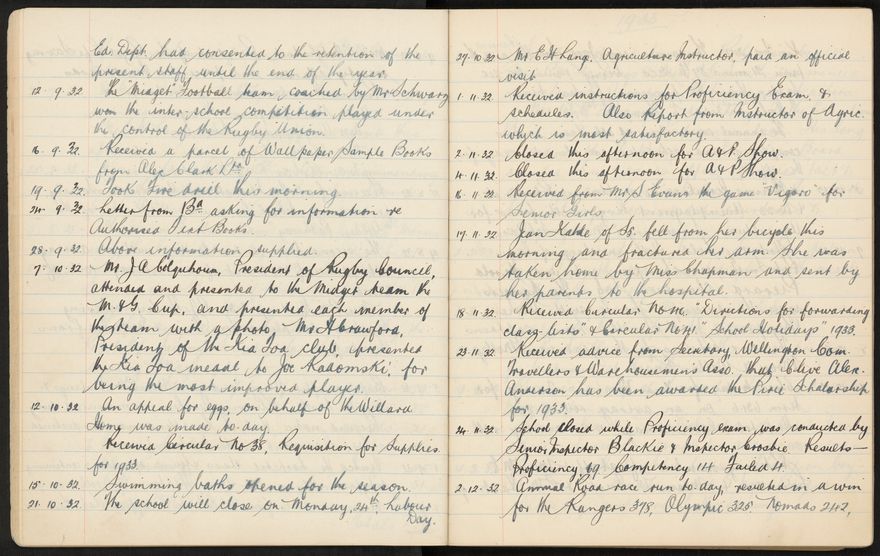 Ed. Dept. had consented to the retention of the
present staff until the end of the year.
12. 9. 32. The "Midget" Football team, coached by Mr Schwarz
won the inter-school competition played under
the control of the Rugby Union.
16. 9. 32. Received a parcel of Wallpaper Sample Books
from Alex Clark Ltd.
19. 9. 32. Took Fire drill this morning.
24. 9. 32 Letter from Bd asking for information re
Authorised Text Books.
28. 9. 32 Above information supplied.
7. 10. 32 Mr. J A Colquhoun, President of Rugby Council,
attended and presented to the Midget team the
M. & G. Cup, and presented each member of
the team with a photo. Mr A Crawford,
President of the Kia Toa club, presented
the Kia Toa medal to Joe Kadomski, for
being the most improved player.
12. 10. 32 An appeal for eggs on behalf of the Willard
Home was made to-day.
Received Circular No 38, Requisition for Supplies
for 1933
15. 10. 32 Swimming baths opened for the season.
21. 10. 32 The school will close on Monday, 24th, Labour
Day.
27. 10. 32 Mr E H Lange, Agriculture Instructor, paid an official
visit.
1. 11. 32. Received instructions for Proficiency Exam. &
schedules. Also Report from Instructor of Agric.
which is most satisfactory.
2. 11. 32 Closed this afternoon for A & P Show.
4. 11. 32. Closed this afternoon for A & P Show.
16. 11. 32 Received from Mr S Evans the game "Vigoro" for
Senior Girls.
17. 11. 32 Jean of S5. fell from her bicycle this
morning and fractured her arm. She was
taken home by Miss Chapman and sent by
her parents to the hospital.
18 11. 32 Received Circular No 40. "Directions for forwarding
class-lists" & Circular No 41. "School Holidays" 1933.
23. 11. 32 Received advice from Secretary, Wellington Com.
Travellers & Warehousemen's Asso. that Clive Alex.
Anderson has been awarded the Pirie Scholarship
for 1933.
24 11. 32. School closed while Proficiency Exam. was conducted by
Senior Inspector Blackie & Inspector Crosbie Results —
Proficiency, 69 Competency 14 Failed 4.
2. 12. 32 Annual Road race run to-day, resulted in a win
for the Rangers 378, Olympic 325 Nomads 242,